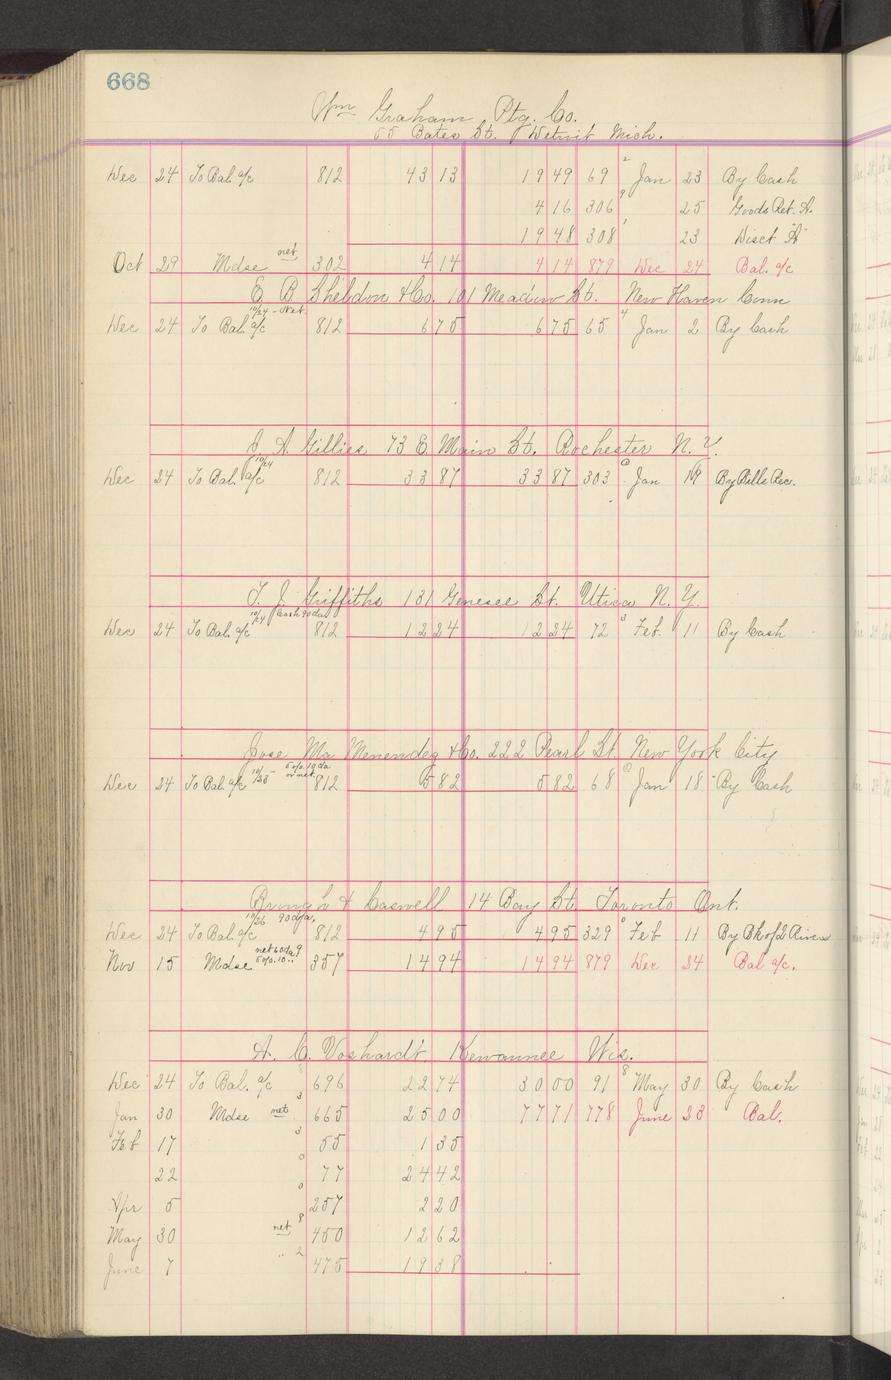 668
Wm Graham Ptg. Co.
55 Bates St. Detroit Mich.
Dec 24 To Bal. a/c 812 43 13 19 49 69 2 Jan 23 By Cash
4 16 306 9 25 Goods Ret. A.
19 48 308 1 23 Disct "A"
Oct 29 Mdse net 302 4 14 4 14 879 Dec 24 Bal. a/c
E B Sheldon & Co. 101 Meadow St. New Haven Conn
10/24 - Net
Dec 24 To Bal a/c 812 6 75 6 75 65 4 Jan 2 By Cash
J. A. Gillies 73 E. Main St. Rochester N. Y.
10/24
Dec 24 To Bal. a/c 812 33 87 33 87 303 Jan 19 By Bills Rec.
T. J. Griffiths 131 Genesee St. Utica N. Y.
10/24 Cash 90 da
Dec 24 To Bal. a/c 812 12 24 12 24 72 3 Feb. 11 By Cash
Jose Ma Menendez & Co. 222 Pearl St. New York City
10/25 5 o/o 10 da or net
Dec 24 To Bal. a/c 812 5 82 5 82 68 Jan 18 By Cash
Brough & Caswell 14 Bay St. Toronto Ont.
10/26 90 d/a.
Dec 24 To Bal. a/c 812 4 95 4 95 329 0 Feb 11 By Bk of 2 Rivers
Nov 15 Mdse net 60 da 5 o/o. 10 .. 357 14 94 14 94 879 Dec 24 Bal a/c.
A. C. Voshardt. Kewaunee Wis.
Dec 24 To Bal. a/c 8 696 22 74 30 00 91 8 May 30 By Cash
Jan 30 Mdse net 3 665 25 00 77 71 778 June 23 Bal.
Feb 17 3 55 1 35
22 0 77 24 42
Apr 5 0 257 2 20
May 30 net 8 450 12 62
June 7 " 2 475 19 38